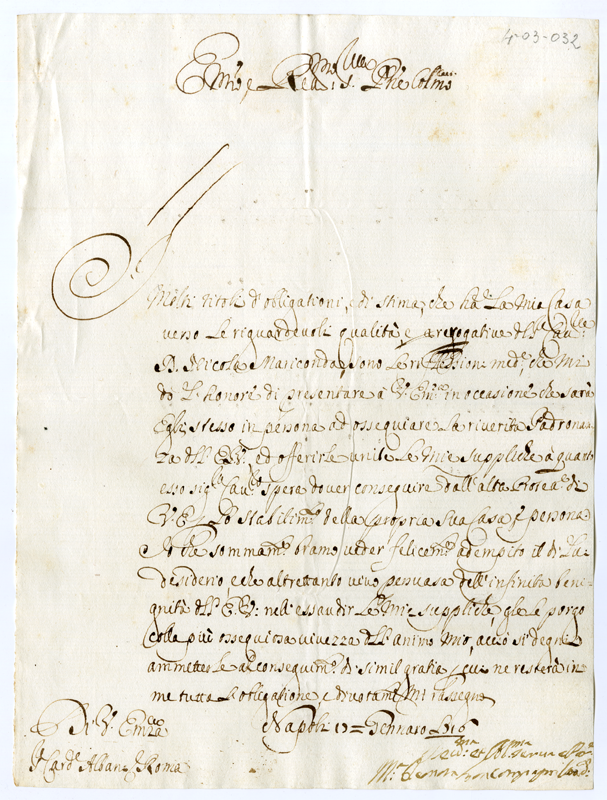 4-03-032
Em.o e Rev.mo Sig.
Molti titoli d'obligationi, e di stima, che ha La Mia Casa
verso Le riguardevoli qualità e prerogative dell' Cav.
D. Nicola Mariconda, sono Le riflessioni med.e che Mi
dò L'honore di presentare à V. Em.a in occasione che sarà
Egli stesso in persona ad ossequiare La riverita Padronan-
za dell' E.V., ed offerirle unite Le Mie suppliche à quant
esso sig. Cav. spera dover conseguire dall'alta Protea. di
V. E. Lo stabilim.to della propria Sua Casa e persona
Il che sommam.te bramo veder felicem.te adempito il di Lui
desiderio, e che altrettanto vivo persuasa dell'infinita beni-
gnità dell' E. V. nell'essaudir Le Mie suppliche, gle le porgo
colla più ossequiosa vivezza dell'animo Mio, acciò si degni
ammetterle al conseguim.to di simil gratia, cui ne resterà in
me tutta l'obligatione e divotam.te Mi rassegno
Di V. Em.za Napoli 17 Gennaro 1716
S. Card. Albani Roma